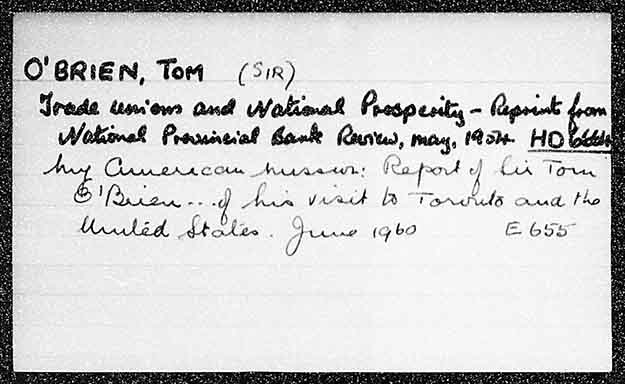 O'BRIEN, TOM (SIR)
Trade unions and National Prosperity - Reprint from
National Provincial Bank Review, may, 1954. HD 6664
My American mission: Report of Sir Tom
O'Brien ... of his visit to Toronto and the
United States. June 1960 E 655